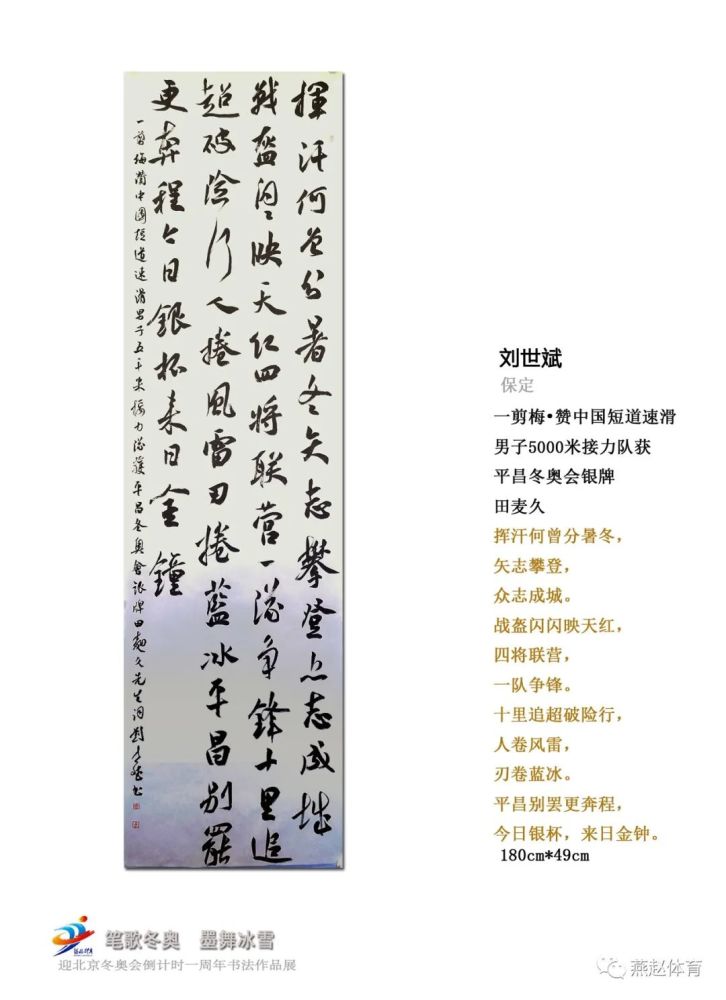 揮汗何曾分暑冬矢志攀登众志成城
战盔闪闪映天红四将联营一队争锋十里追
超破险行人捲風雷刃捲藍冰平昌别罷
更奔程今日銀杯来日金鐘
一剪梅赞中國短道速滑男子五千米接力隊獲平昌冬奥會银牌田麦久先生词刘世斌书
刘世斌
保定
一剪梅•赞中国短道速滑
男子5000米接力队获
平昌冬奥会银牌
田麦久
挥汗何曾分暑冬，
矢志攀登，
众志成城。
战盔闪闪映天红，
四将联营，
一队争锋。
十里追超破险行，
人卷风雷，
刃卷蓝冰。
平昌别罢更奔程，
今日银杯，来日金钟。
180cm*49cm
笔歌冬奥 墨舞冰雪
迎北京冬奥会倒计时一周年书法作品展
燕赵体育